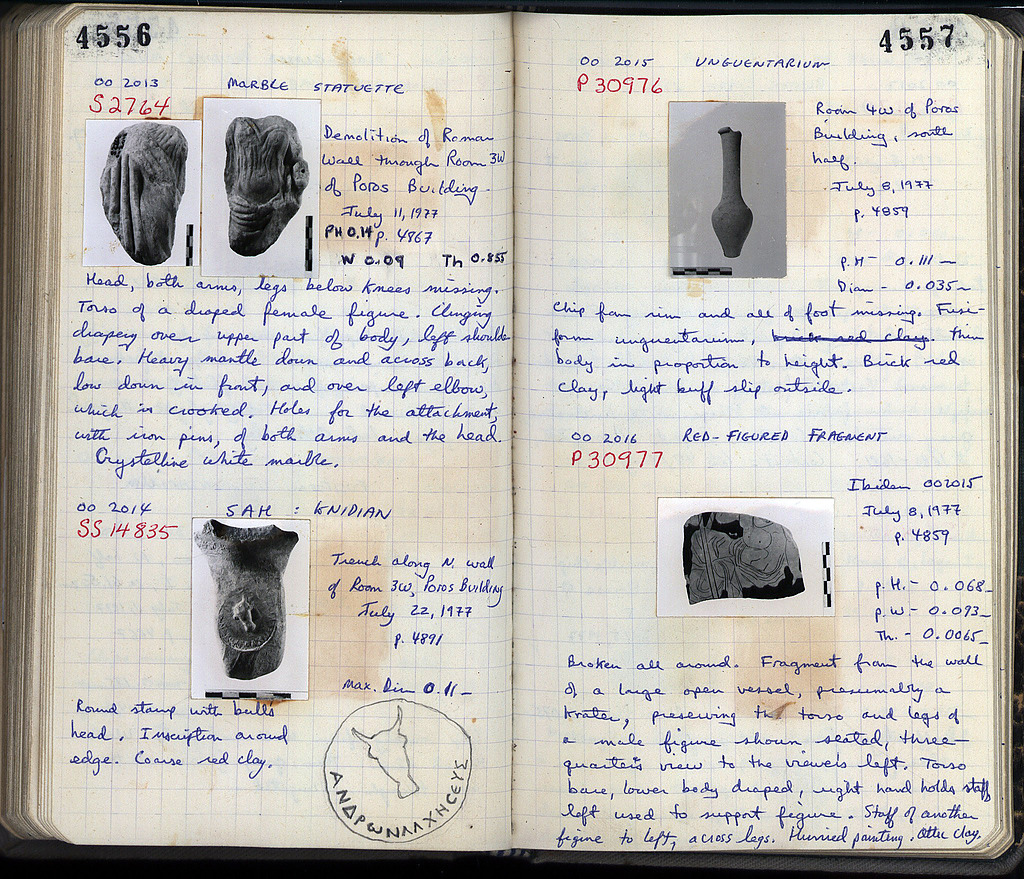 4556
OO 2013 MARBLE STATUETTE
S 2764
Demolition of Roman
Wall through Room 3W
of Poros Building
July 11, 1977
PH 0.14 p. 4867
W 0.09 Th 0.855
Head, both arms, legs below knees missing.
Torso of a draped female figure. Clinging
drapery over upper part of body, left shoulder
bare. Heavy mantle down and across back,
low down in front, and over left elbow,
which is crooked. Holes for the attachment,
with iron pins, of both arms and the head.
Crystalline white marble.
OO 2014 SAH : KNIDIAN
SS 14835
Trench along N. wall
of Room 3W, Poros Building
July 22, 1977
p. 4891
Max. Dim 0.11-
Round stamp with bulls
head. Inscription around
edge. Coarse red clay.
4557
OO 2015 UNGUENTARIUM
P 30976
Room 4W of Poros
Building, south
half.
July 8, 1977
p. 4859
p. H- 0.111 -
Diam - 0.035-
Chip from rim and all of foot missing. Fusi-
form unguentarium, brick red clay. Thin
body in proportion to height. Brick red
clay, light buff slip outside.
OO 2016 RED-FIGURED FRAGMENT
P 30977
Ibidem OO2015
July 8, 1977
p. 4859
p. H. - 0.068-
p. W - 0.093-
Th. - 0.0065-
Broken all around. Fragment from the wall
of a large open vessel, presumably a
krater, preserving the torso and legs of
a male figure shown seated, three-
quarters view to the viewers left. Torso
bare, lower body draped, right hand holds staff
left used to support figure. Staff of another
figure to left, across legs. Hurried painting. Attic clay.